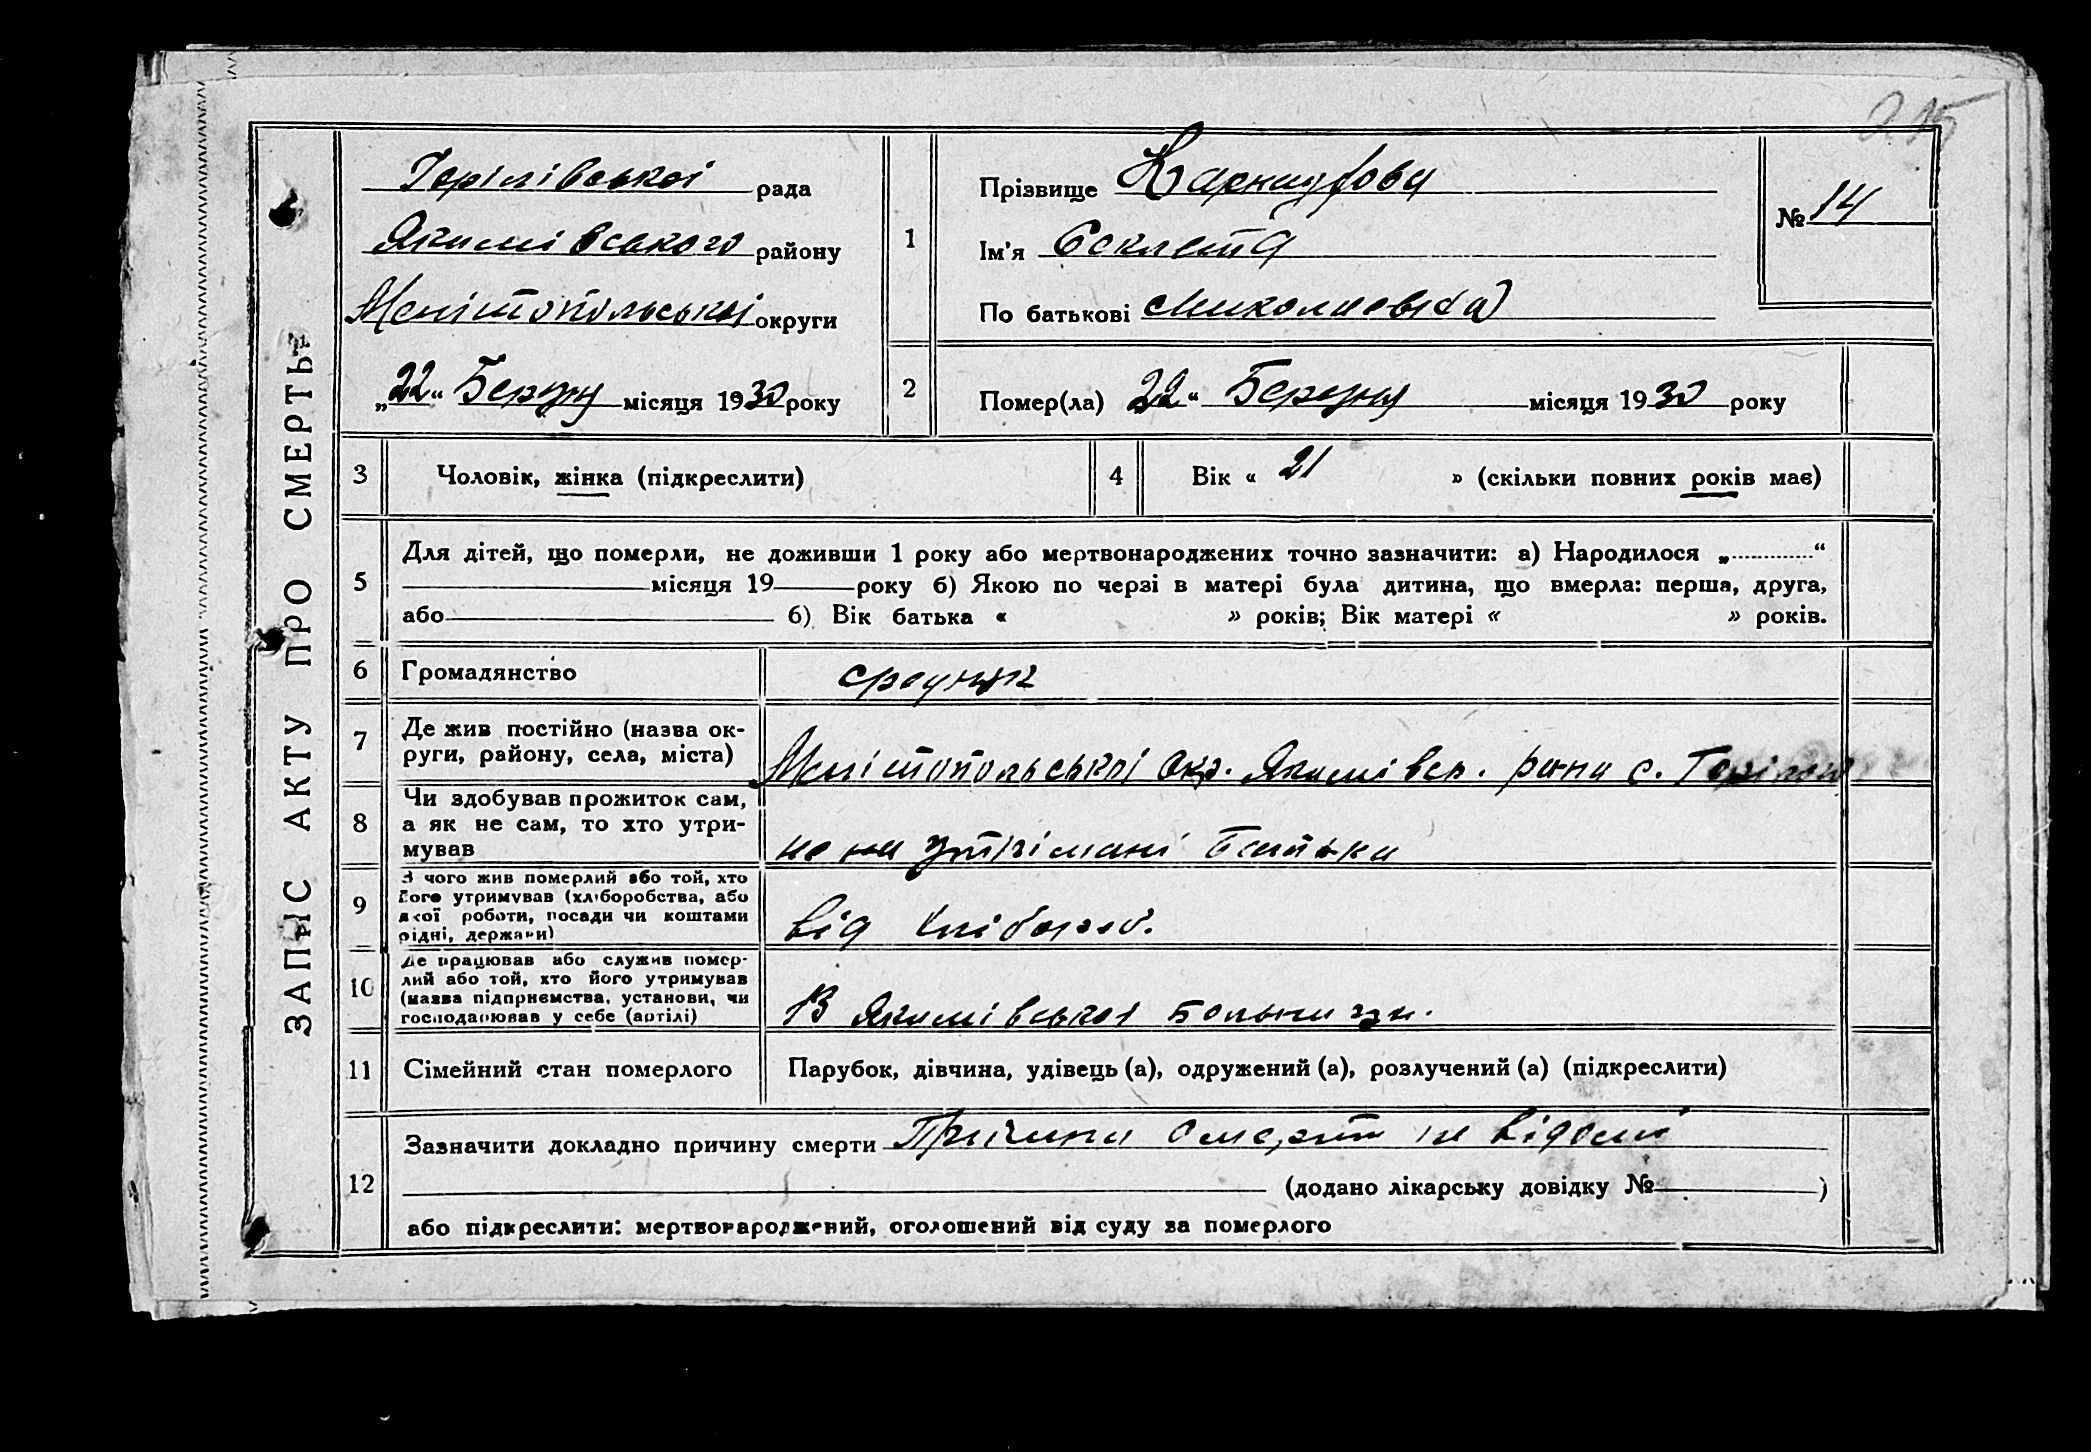 215
ЗАПИС АКТУ ПРО СМЕРТЬ
Горілівської рада
Якимівського району
Мелітопольської округи
„22“ Березня місяця 1930 року
1
Прізвище
Ім'я Феклета
По батькові Миколаев
№ 14
2
Помер(ла) 22“ Березня місяця 1930 року
3
Чоловік, жінка (підкреслити)
4
Вік « 21 » (скільки повних років має)
5
Для дітей, що померли, не доживши 1 року або мертвонароджених точно зазначити: а) Народилося „ “
місяця 19 року б) Якою по черзі в матері була дитина, що вмерла: перша, друга,
або б) Вік батька « » років; Вік матері « » років.
6
Громадянство
7
Де жив постійно (назва ок-
руги, району, села, міста)
Мелітопольської Окр. Якимівсь. рана с. Горілой
8
Чи здобував прожиток сам,
а як не сам, то хто утри-
мував
не на утрімані Батька
9
З чого жив померлий або той, хто
його утримував (хліборобства, або
якої роботи, посади чи коштами
рідні, держави)
від хлібороб.
10
Де працював або служив помер-
лий або той, хто його утримував
(назва підприємства, установи, чи
господарював у себе (артілі)
В Якимівської Больници.
11
Сімейний стан померлого
Парубок, дівчина, удівець (а), одружений (а), розлучений (а) (підкреслити)
12
Зазначити докладно причину смерти Причина смерти не відомі
(додано лікарську довідку № )
або підкреслити: мертвонароджений, оголошений від суду за померлого